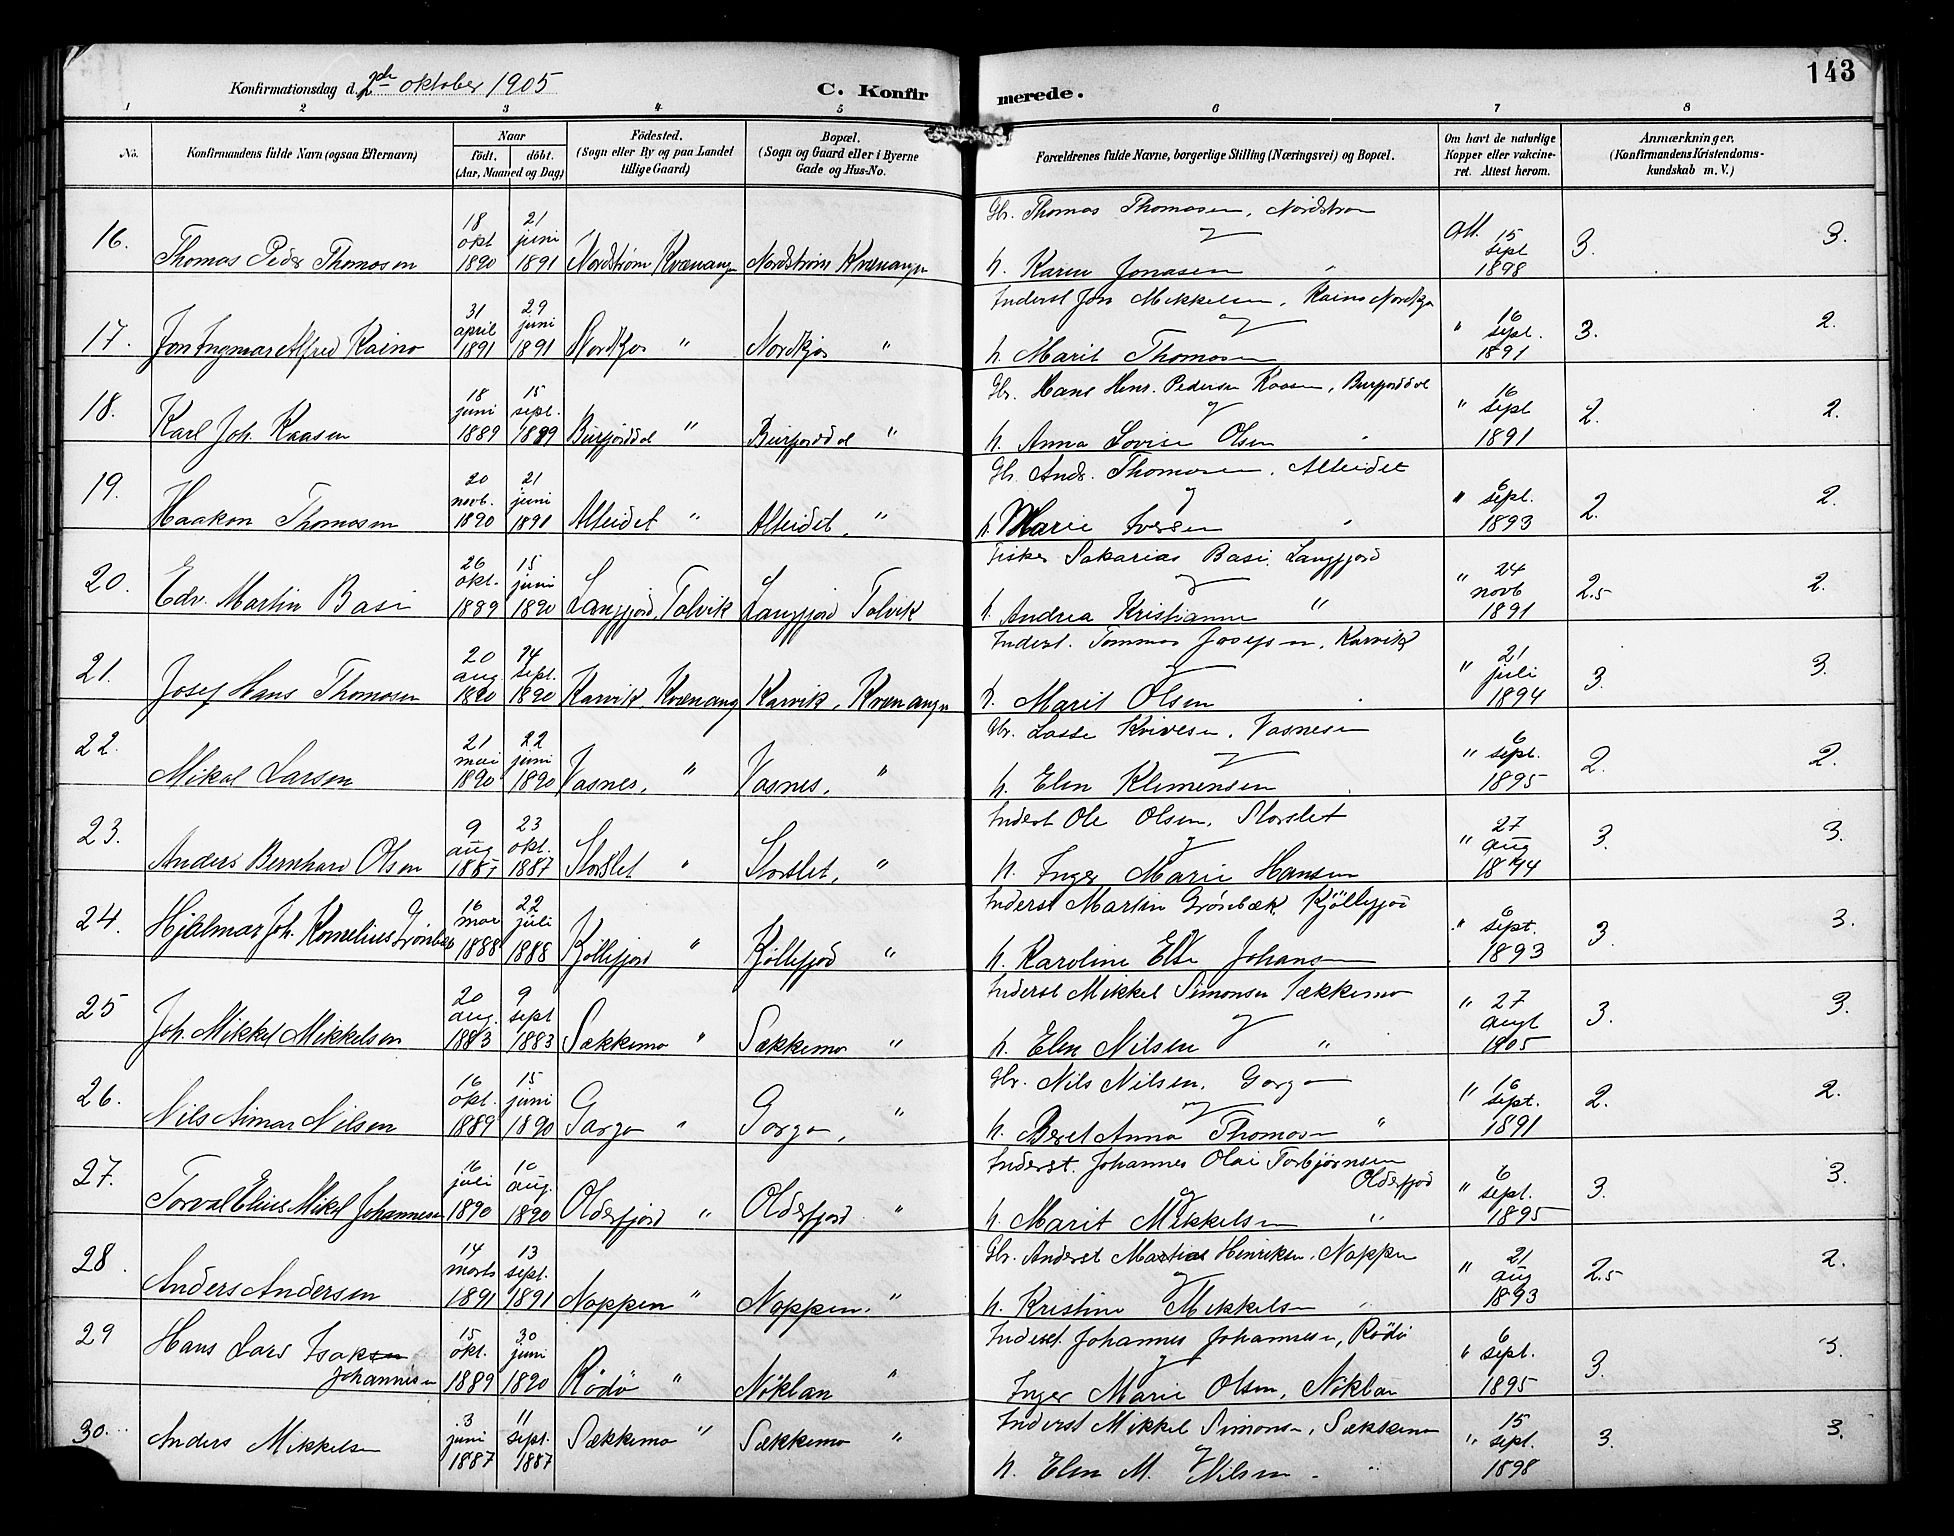 143
Konfirmationsdag d. 2den oktober 1905 C. Konfirmerede.
1 2 3 4 5 6 7 8
No. Konfirmandens fulde Navn (ogsaa Efternavn) Naar födt. döbt. (Aar, Maaned og Dag) Födested. (Sogn eller By og paa Landet tillige Gaard) Bopæl. (Sogn og Gaard eller i Byerne Gade og Hus-No. Forældrenes fulde Navne, borgerlige Stilling (Næringsvei) og Bopæl. Om havt de naturlige Kopper eller vakcineret. Attest herom. Anmærkninger. (Konfirmandens Kristendomskundskab m. V.)
16. Thomas Peder Thomasen 18 okt 1890 21 juni 1891 Nordstrøm Kvænangen Nordstrøm Kvænangen Gbr. Thomas Thomasen, Nordstrøm
h. Karen Jonasen " Att. 15 sept 1898 3. 3.
17. Jon Ingmar Alfred Kaino 31 april 1891 29 juni 1891 Nordkjos " Nordkjos " Inderst Jon Mikkelsen, Kaino Nordkjos
h. Marit Thomasen " 16 sept. 1891 3. 2.
18. Karl Joh. Kaasen 18 juni 1889 15 sept. 1889 Burfjorddal " Burfjorddal " Gbr. Hans Henr. Pedersen Kaasen, Burfjorddal
h. Anna Lovise Olsen " " 16 sept 1891 2. 2.
19. Haakon Thomasen 20 novb. 1890 21 juni 1891 Alteidet " Alteidet, " Gbr. Andr. Thomasen, Alteidet
h. Marie Iversen " " 6 sept. 1893 2. 2.
20. Edv. Martin Basi 26 okt. 1889 15 juni 1890 Langfjord, Talvik Langfjord Talvik Fisker Sakarias Basi, Langfjord
h. Andrea Kristianne " " 24 novb 1891 2.5 2.
21. Josef Hans Thomasen 20 aug 1890 14 sept. 1890 Karvik Kvænang Karvik, Kvænangen Inderst. Tommas Josefsen, Karvik
h. Marit Olsen " " 21 juli 1894 3. 3.
22. Mikal Larsen 21 mai 1890 22 juni 1890 Vasnes, " Vasnes, " Gbr. Lasse Kvivesen, Vasnesen
h. Elen Klemensen " " 6 sept. 1895 2. 2.
23. Anders Bernhard Olsen 9 aug 1887 23 okt. 1887 Storslet " Storslet, " Inderst Ole Olsen, Storslet
h. Inger Marie Hansen " 27 aug 1894 3. 3.
24. Hjalmar Joh. Kornelius Grønbæk 16 mar 1888 22 juli 1888 Kjøllefjord " Kjøllefjord " Inderst Martin Grønbæk, Kjøllefjord
h. Karoline Else Johansen " 6 sept. 1893 3. 3.
25 Joh. Mikkel Mikkelsen 20 aug. 1883 9 sept 1883 Sækkemo " Sækkemo " Inderst Mikkel Simonsen Sækkemo
h. Elen Nilsen " " 27 augt 1905 3. 3.
26. Nils Aimar Nilsen 16 okt. 1889 15 juni 1890 Gargo " Gargo, " Gbr. Nils Nilsen, Gargo
h. Beret Anna Thomasen " " 16 sept. 1891 2. 2.
27. Torval Elius Mikel Johannesen 16 juli 1890 10 aug. 1890 Olderfjord " Olderfjord " Inderst. Johannes Olai Torbjørnsen Olderfjord
h. Marit Mikkelsen " " 6 sept. 1895 3. 3.
28. Anders Andersen 14 marts 1891 13 sept. 1891 Noppen " Noppen, " Gbr. Anderst Mathias Henriksen, Noppen
h. Kristine Mikkelsen " " 21 aug 1893 2.5 2.
29 Hans Lars Isaksen Johannesen 15 okt. 1889 30 juni 1890 Rödö " Nöklan " Inderst. Johannes Johannesen, Rödö
Inger Marie Olsen, Nöklan " 6 sept. 1895 3. 3.
30. Anders Mikkelsen 3 juni 1887 11 sept. 1887 Sækkemo " Sækkemo " Inderst Mikkel Simonsen, Sækkemo
h. Elen M. Nilsen " " 15 sept. 1898 3. 3.